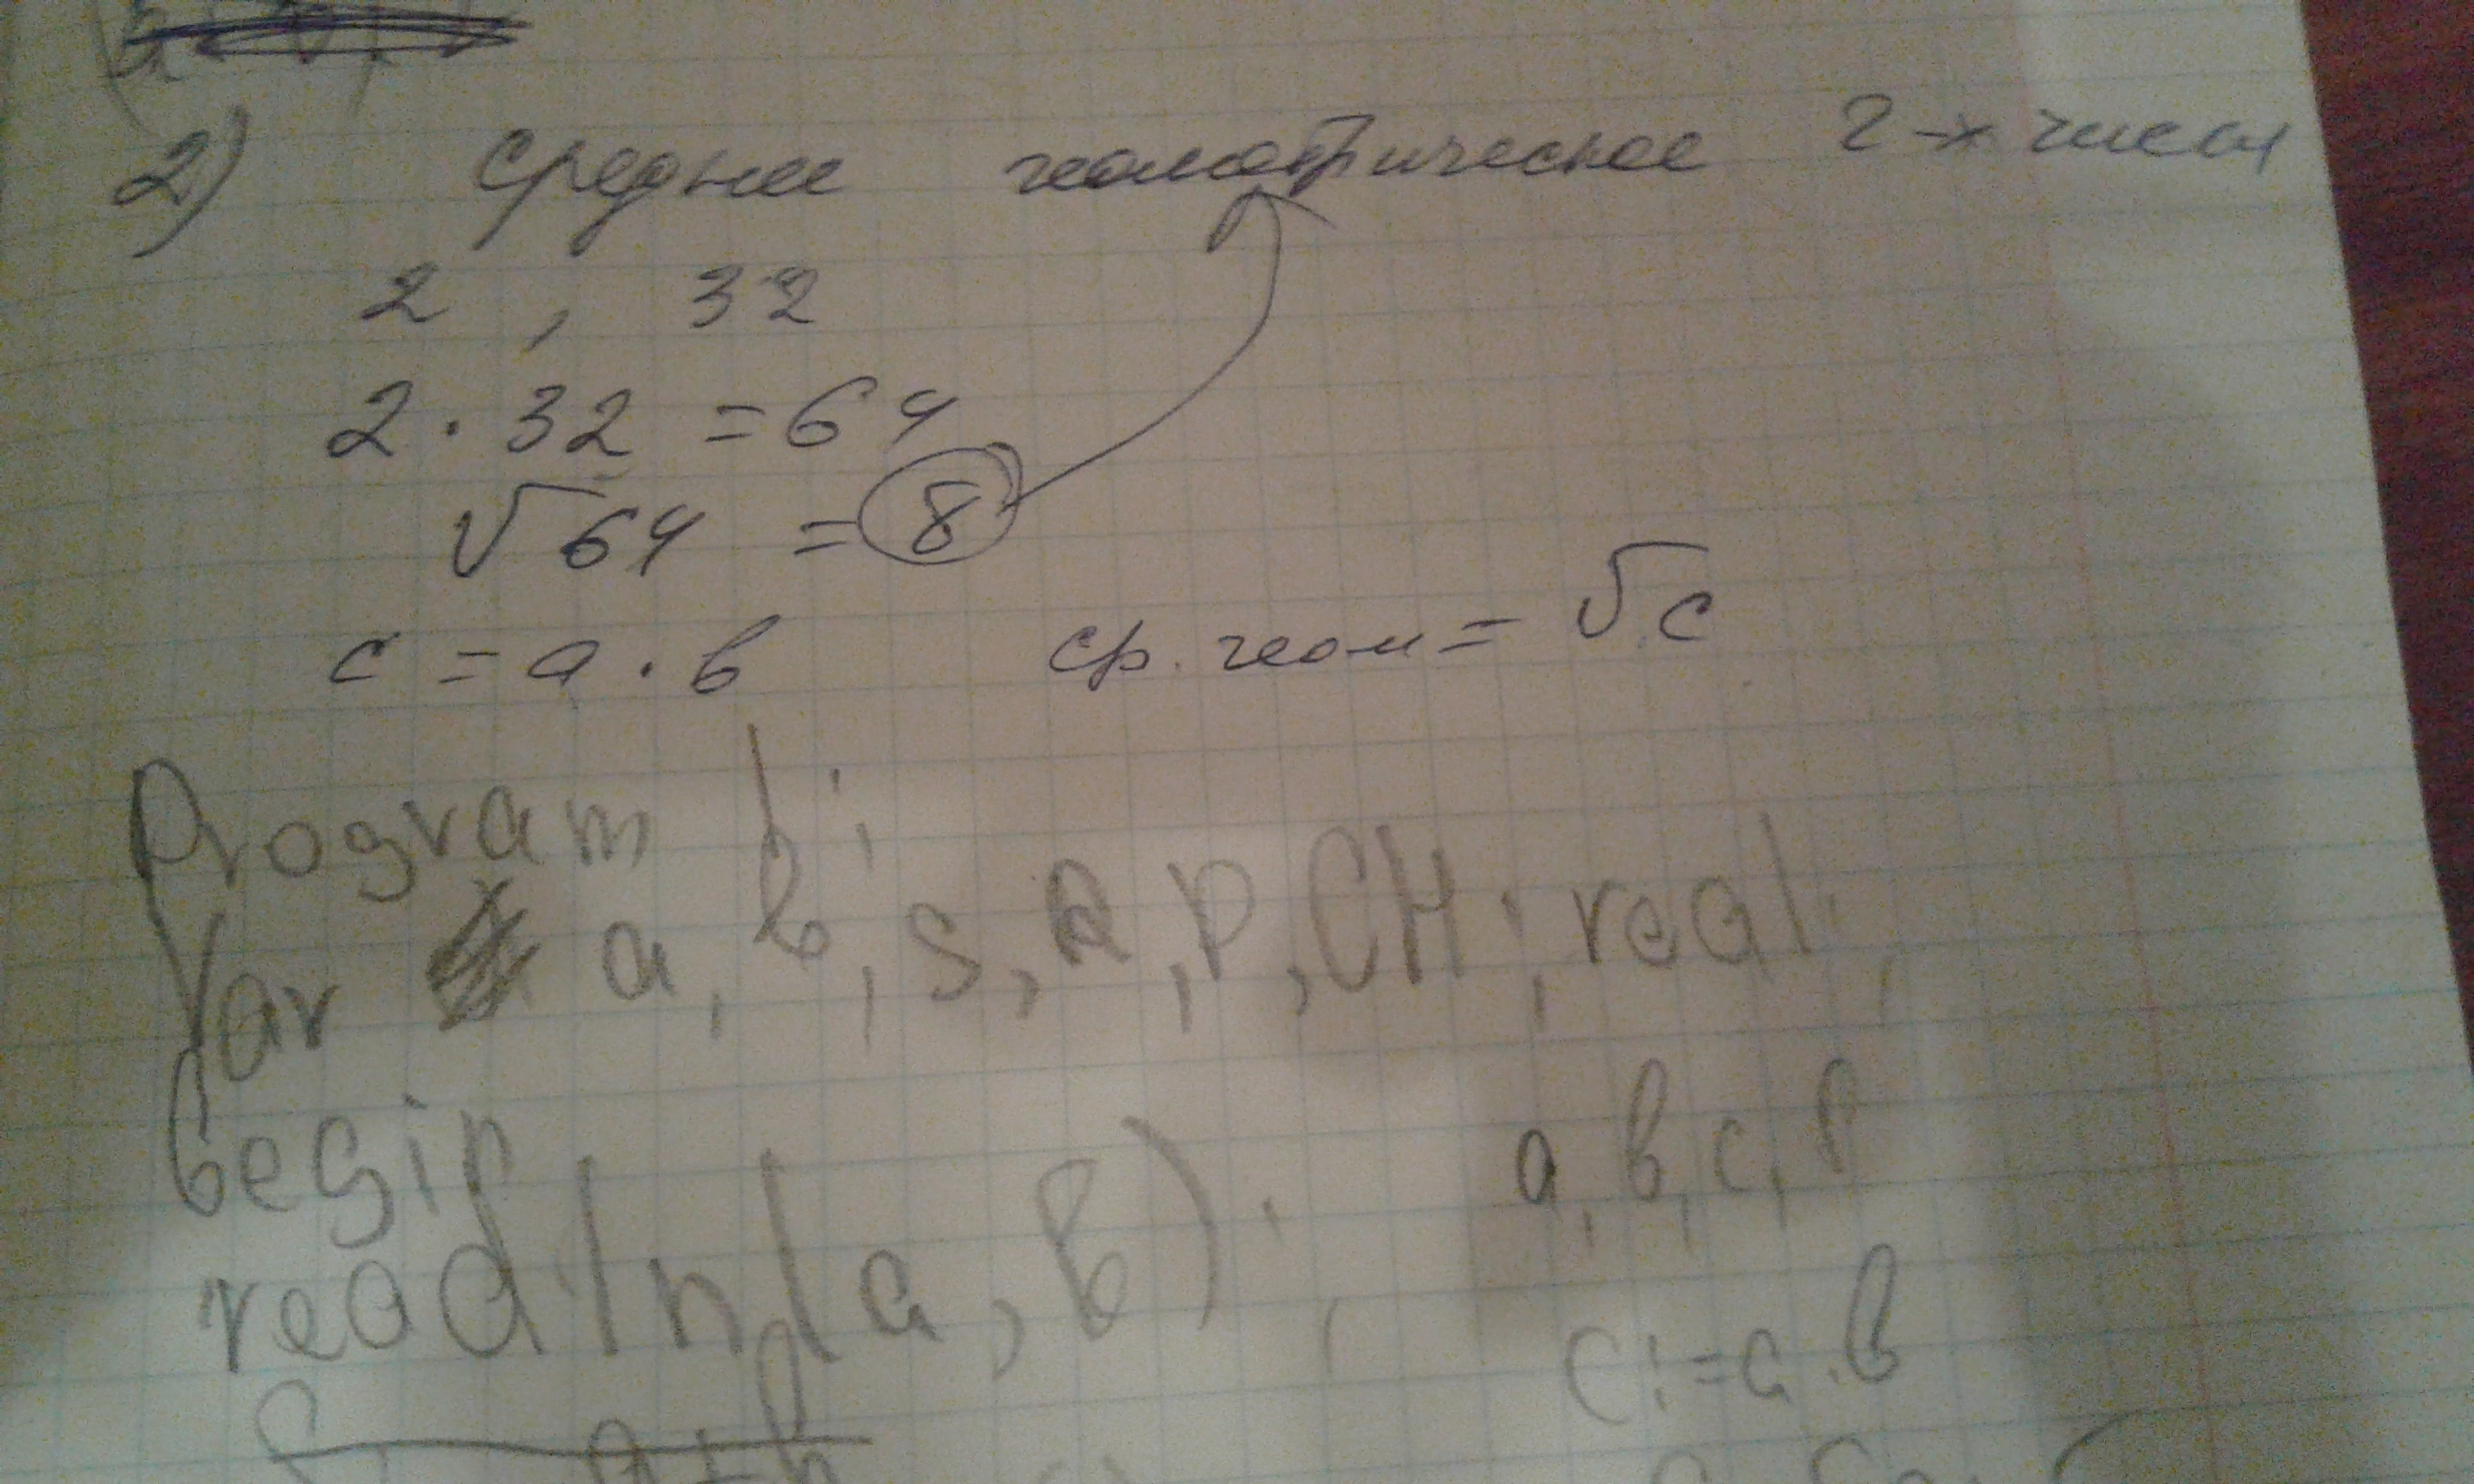 2) Среднее геометрическое 2-х чисел
2 , 32
2 · 32 = 64
√64 = 8
c = a · b ср. геом = √c
Program b;
Var a, b, s, p, CH : real;
begin a, b, c,
readln(a, b); c:=a·b